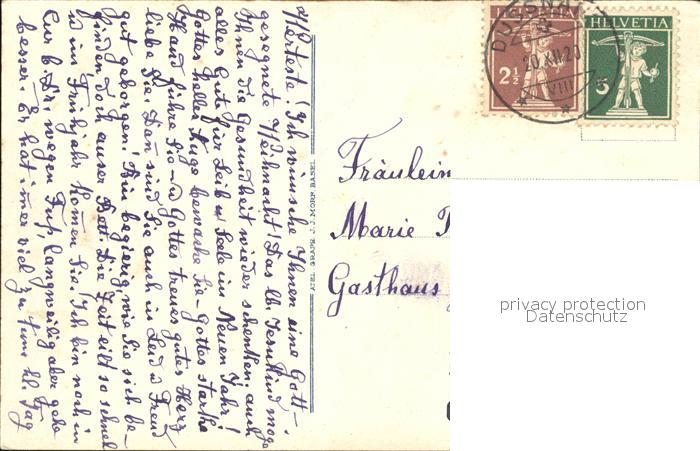 Werteste! Ich wünsche Ihnen eine Gott-
gesegnete Weihnacht! Das lb. Jesukind möge
Ihnen die Gesundheit wieder schenken, auch
alles Gute für Leib u Seele im Neuen Jahr!
Gottes helles Auge bewache Sie – Gottes starke
Hand führe Sie – u Gottes treues gutes Herz
liebe Sie. Dan sind Sie auch in Leid u Freud
gut geborgen! Bin begierig, wie Sie sich be-
finden, doch ausser Bett. Die Zeit eilt so schnel
u im Frühjahr komen Sie. Ich bin noch in
Kur b. Dr. wegen Fuß, langweilig aber gehe
besser. Er hat imer viel zu tun. Tag
J. MORF. BASEL
HELVETIA
2½
HELVETIA
5
DUSSNA
20.XII.20
VIII
Fräulein
Marie
Gasthaus
privacy protection
Datenschutz